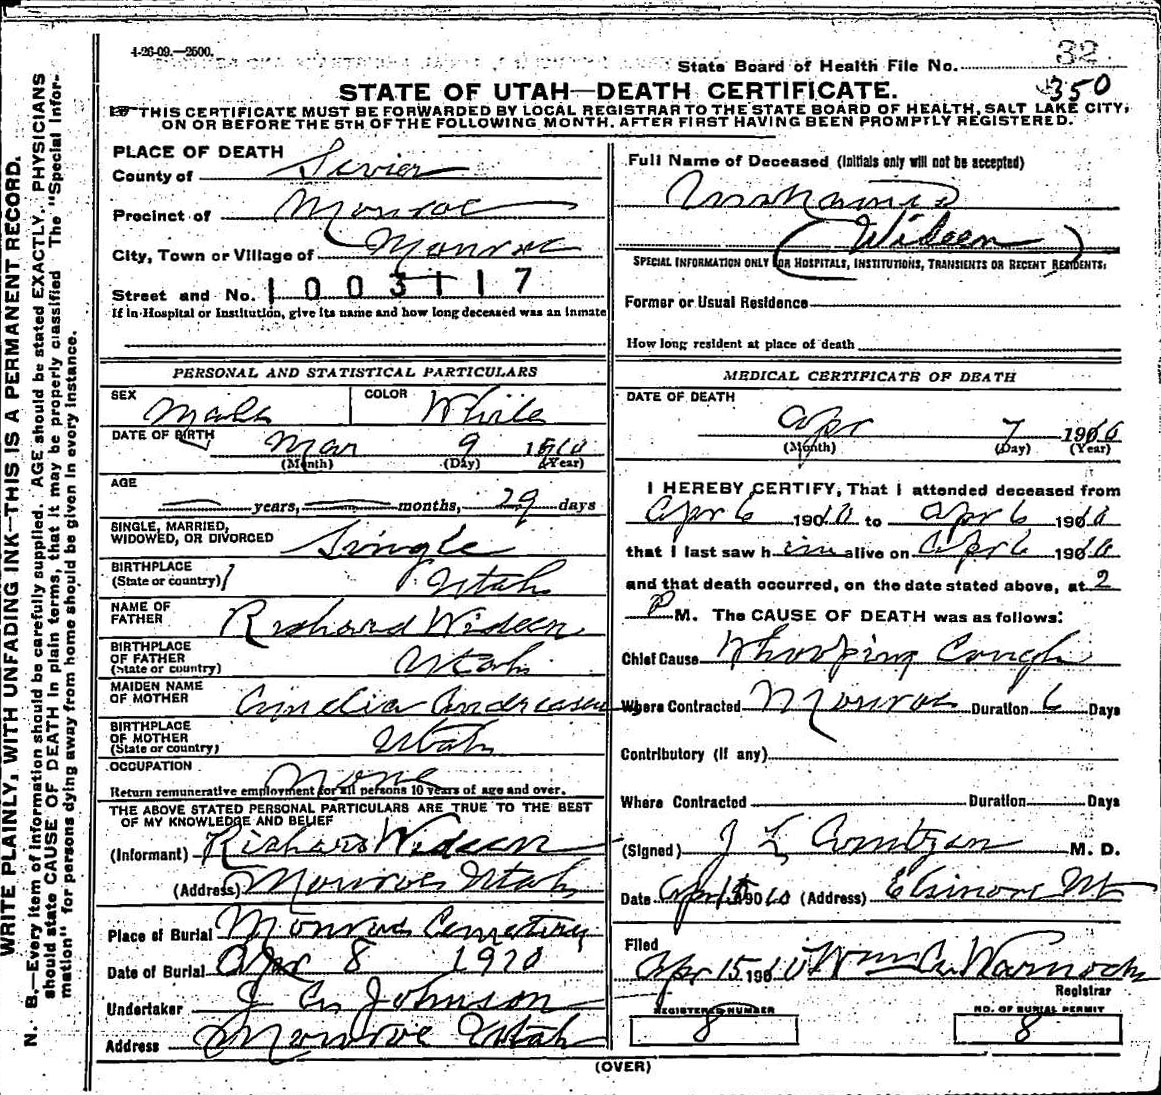 WRITE PLAINLY, WITH UNFADING INK—THIS IS A PERMANENT RECORD.
N. B.—Every item of information should be carefully supplied. AGE should be stated EXACTLY. PHYSICIANS
should state CAUSE OF DEATH in plain terms, that it may be properly classified. The "Special Infor-
mation" for persons dying away from home should be given in every instance.
4-26-09.—2500.
32
State Board of Health File No.
350
STATE OF UTAH—DEATH CERTIFICATE.
THIS CERTIFICATE MUST BE FORWARDED BY LOCAL REGISTRAR TO THE STATE BOARD OF HEALTH, SALT LAKE CITY,
ON OR BEFORE THE 5TH OF THE FOLLOWING MONTH, AFTER FIRST HAVING BEEN PROMPTLY REGISTERED.
PLACE OF DEATH
County of Sevier
Precinct of Monroe
City, Town or Village of Monroe
Street and No. 1003117
If in Hospital or Institution, give its name and how long deceased was an inmate
Full Name of Deceased (Initials only will not be accepted)
Unnamed
(Wideen)
SPECIAL INFORMATION ONLY FOR HOSPITALS, INSTITUTIONS, TRANSIENTS OR RECENT RESIDENTS:
Former or Usual Residence
How long resident at place of death
PERSONAL AND STATISTICAL PARTICULARS
SEX Male COLOR White
DATE OF BIRTH Mar 9 1910
(Month) (Day) (Year)
AGE
years, months, 29 days
SINGLE, MARRIED,
WIDOWED, OR DIVORCED Single
BIRTHPLACE
(State or country) Utah
NAME OF
FATHER Richard Wideen
BIRTHPLACE
OF FATHER
(State or country) Utah
MAIDEN NAME
OF MOTHER Amelia Andreasen
BIRTHPLACE
OF MOTHER
(State or country) Utah
OCCUPATION None
Return remunerative employment for all persons 10 years of age and over.
THE ABOVE STATED PERSONAL PARTICULARS ARE TRUE TO THE BEST
OF MY KNOWLEDGE AND BELIEF
(Informant) Richard Wideen
(Address) Monroe Utah
Place of Burial Monroe Cemetery
Date of Burial Apr 8 1910
Undertaker J A Johnson
Address Monroe Utah
MEDICAL CERTIFICATE OF DEATH
DATE OF DEATH
Apr 7 1910
(Month) (Day) (Year)
I HEREBY CERTIFY, That I attended deceased from
Apr 6 1910 to Apr 6 1910
that I last saw him alive on Apr 6 1910
and that death occurred, on the date stated above, at 2
P M. The CAUSE OF DEATH was as follows:
Chief Cause Whooping Cough
Where Contracted Monroe Duration 6 Days
Contributory (if any)
Where Contracted Duration Days
(Signed) J L M. D.
Date Apr 1910 (Address) Elsinore Ut
Filed
Apr 15, 1910 Wm A. Warnock
Registrar
REGISTERED NUMBER
8
NO. OF BURIAL PERMIT
8
(OVER)